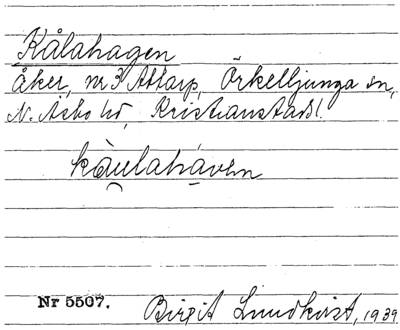 Kålahagen
Åker, nr 3 Attarp, Örkelljunga sn,
N. Åsbo hd, Kristianstads l.
Nr 5507.
Birgit Lundkvist, 1939